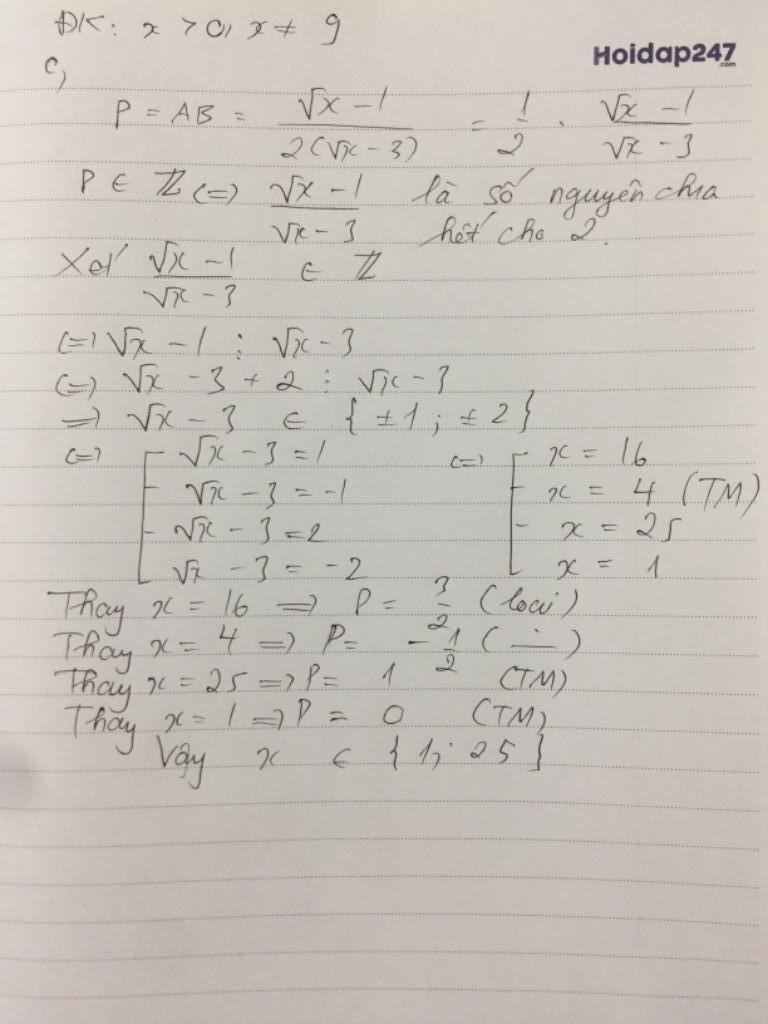 ĐK: x > 0, x ≠ 9
Hoidap247
.com
c,
P = AB = (√x - 1)/(2(√x - 3)) = 1/2 . (√x - 1)/(√x - 3)
P ∈ ℤ (=) (√x - 1)/(√x - 3) là số nguyên chia
hết cho 2.
Xét (√x - 1)/(√x - 3) ∈ ℤ
(=) √x - 1 ⋮ √x - 3
(=) √x - 3 + 2 ⋮ √x - 3
=) √x - 3 ∈ { ±1 ; ±2 }
(=) [ √x - 3 = 1 (=) [ x = 16
√x - 3 = -1 x = 4 (TM)
√x - 3 = 2 x = 25
√x - 3 = -2 x = 1
Thay x = 16 =) P = 3/2 (loại)
Thay x = 4 =) P = -1/2 ( ÷ )
Thay x = 25 =) P = 1 (TM)
Thay x = 1 =) P = 0 (TM)
Vậy x ∈ { 1; 25 }